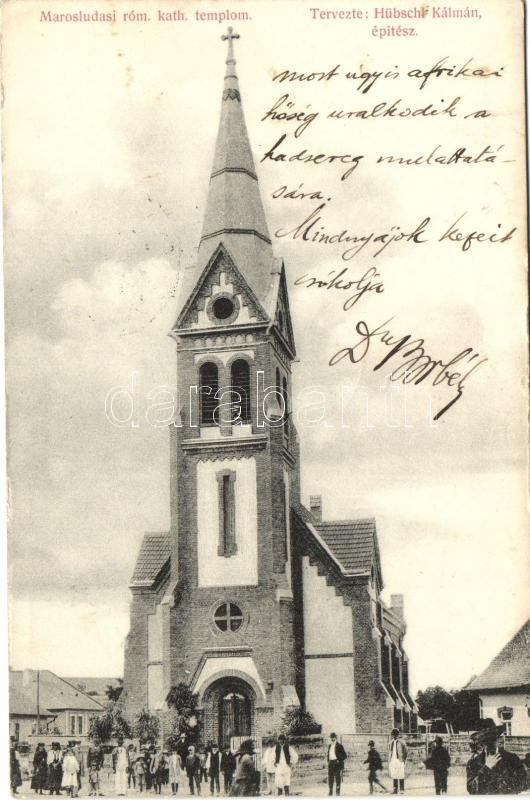 Marosludasi róm. kath. templom.
Tervezte: Hübschl Kálmán,
építész.
most ugyis afrikai
hőség uralkodik a
hadsereg mulattatá-
sára.
Mindnyájok kezeit
csókolja
Dr Borbély
darabanth